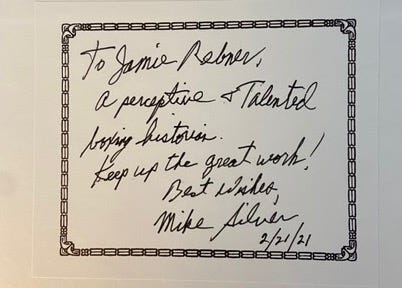 To Jamie Rebner,
a perceptive & Talented
boxing historian.
Keep up the great work!
Best Wishes,
Mike Silver
2/21/21